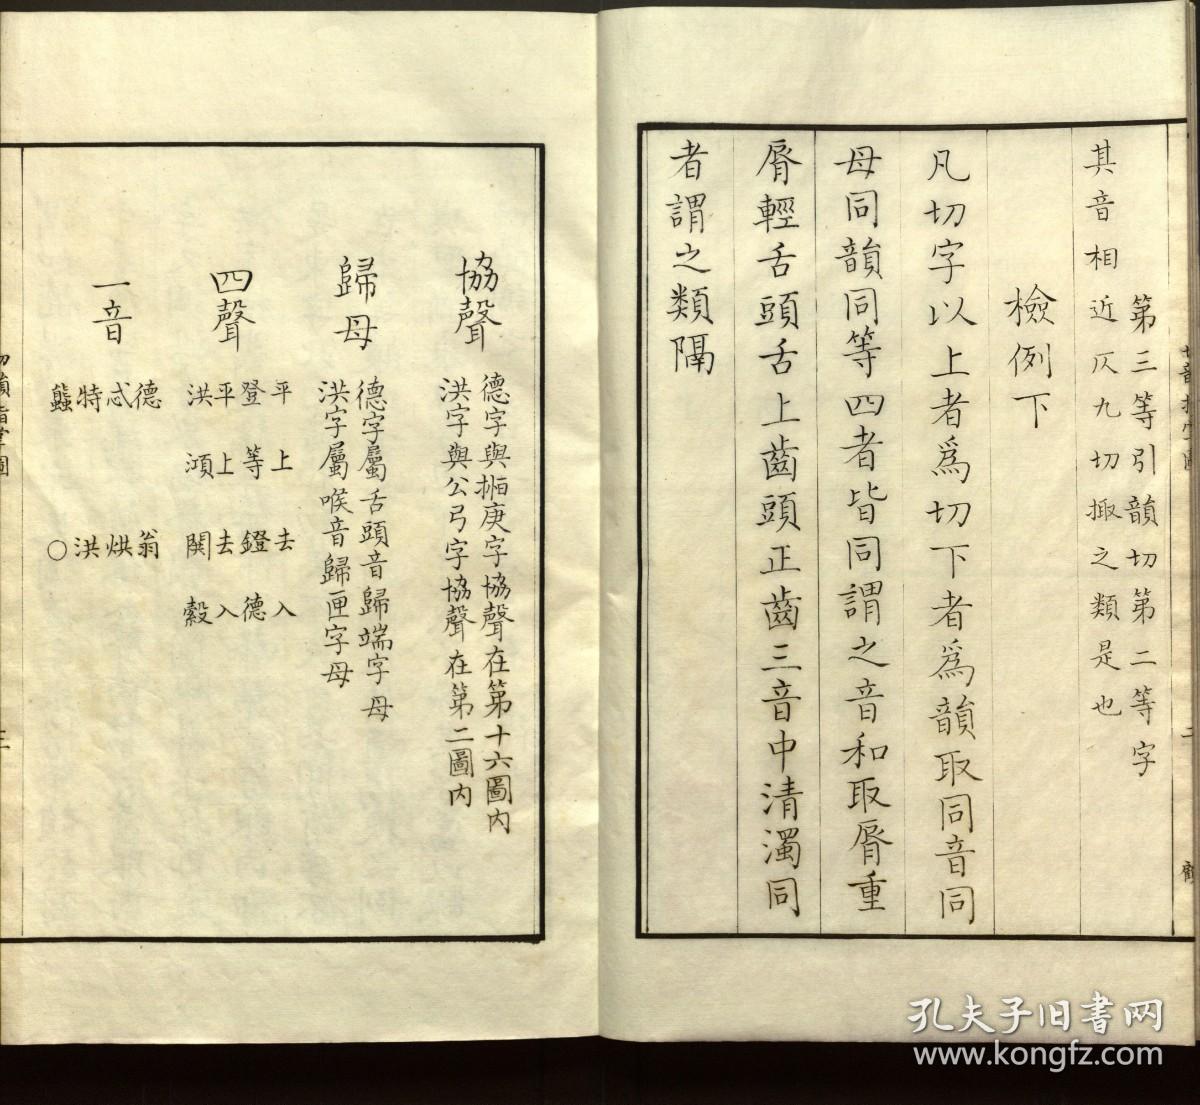 第三等引韻切第二等字
其音相近仄九切掫之類是也
檢例下
凡切字以上者爲切下者爲韻取同音同
母同韻同等四者皆同謂之音和取脣重
脣輕舌頭舌上齒頭正齒三音中清濁同
者謂之類隔
協聲
德字與揯庚字協聲在第十六圖内
洪字與公弓字協聲在第二圖内
歸母
德字屬舌頭音歸端字母
洪字屬喉音歸匣字母
四聲
平上去入
登等鐙德
平上去入
洪澒閧縠
一音
德 翁
忒 烘
特 洪
䘌 〇
切韻指掌圖
三
孔夫子旧书网
www.kongfz.com